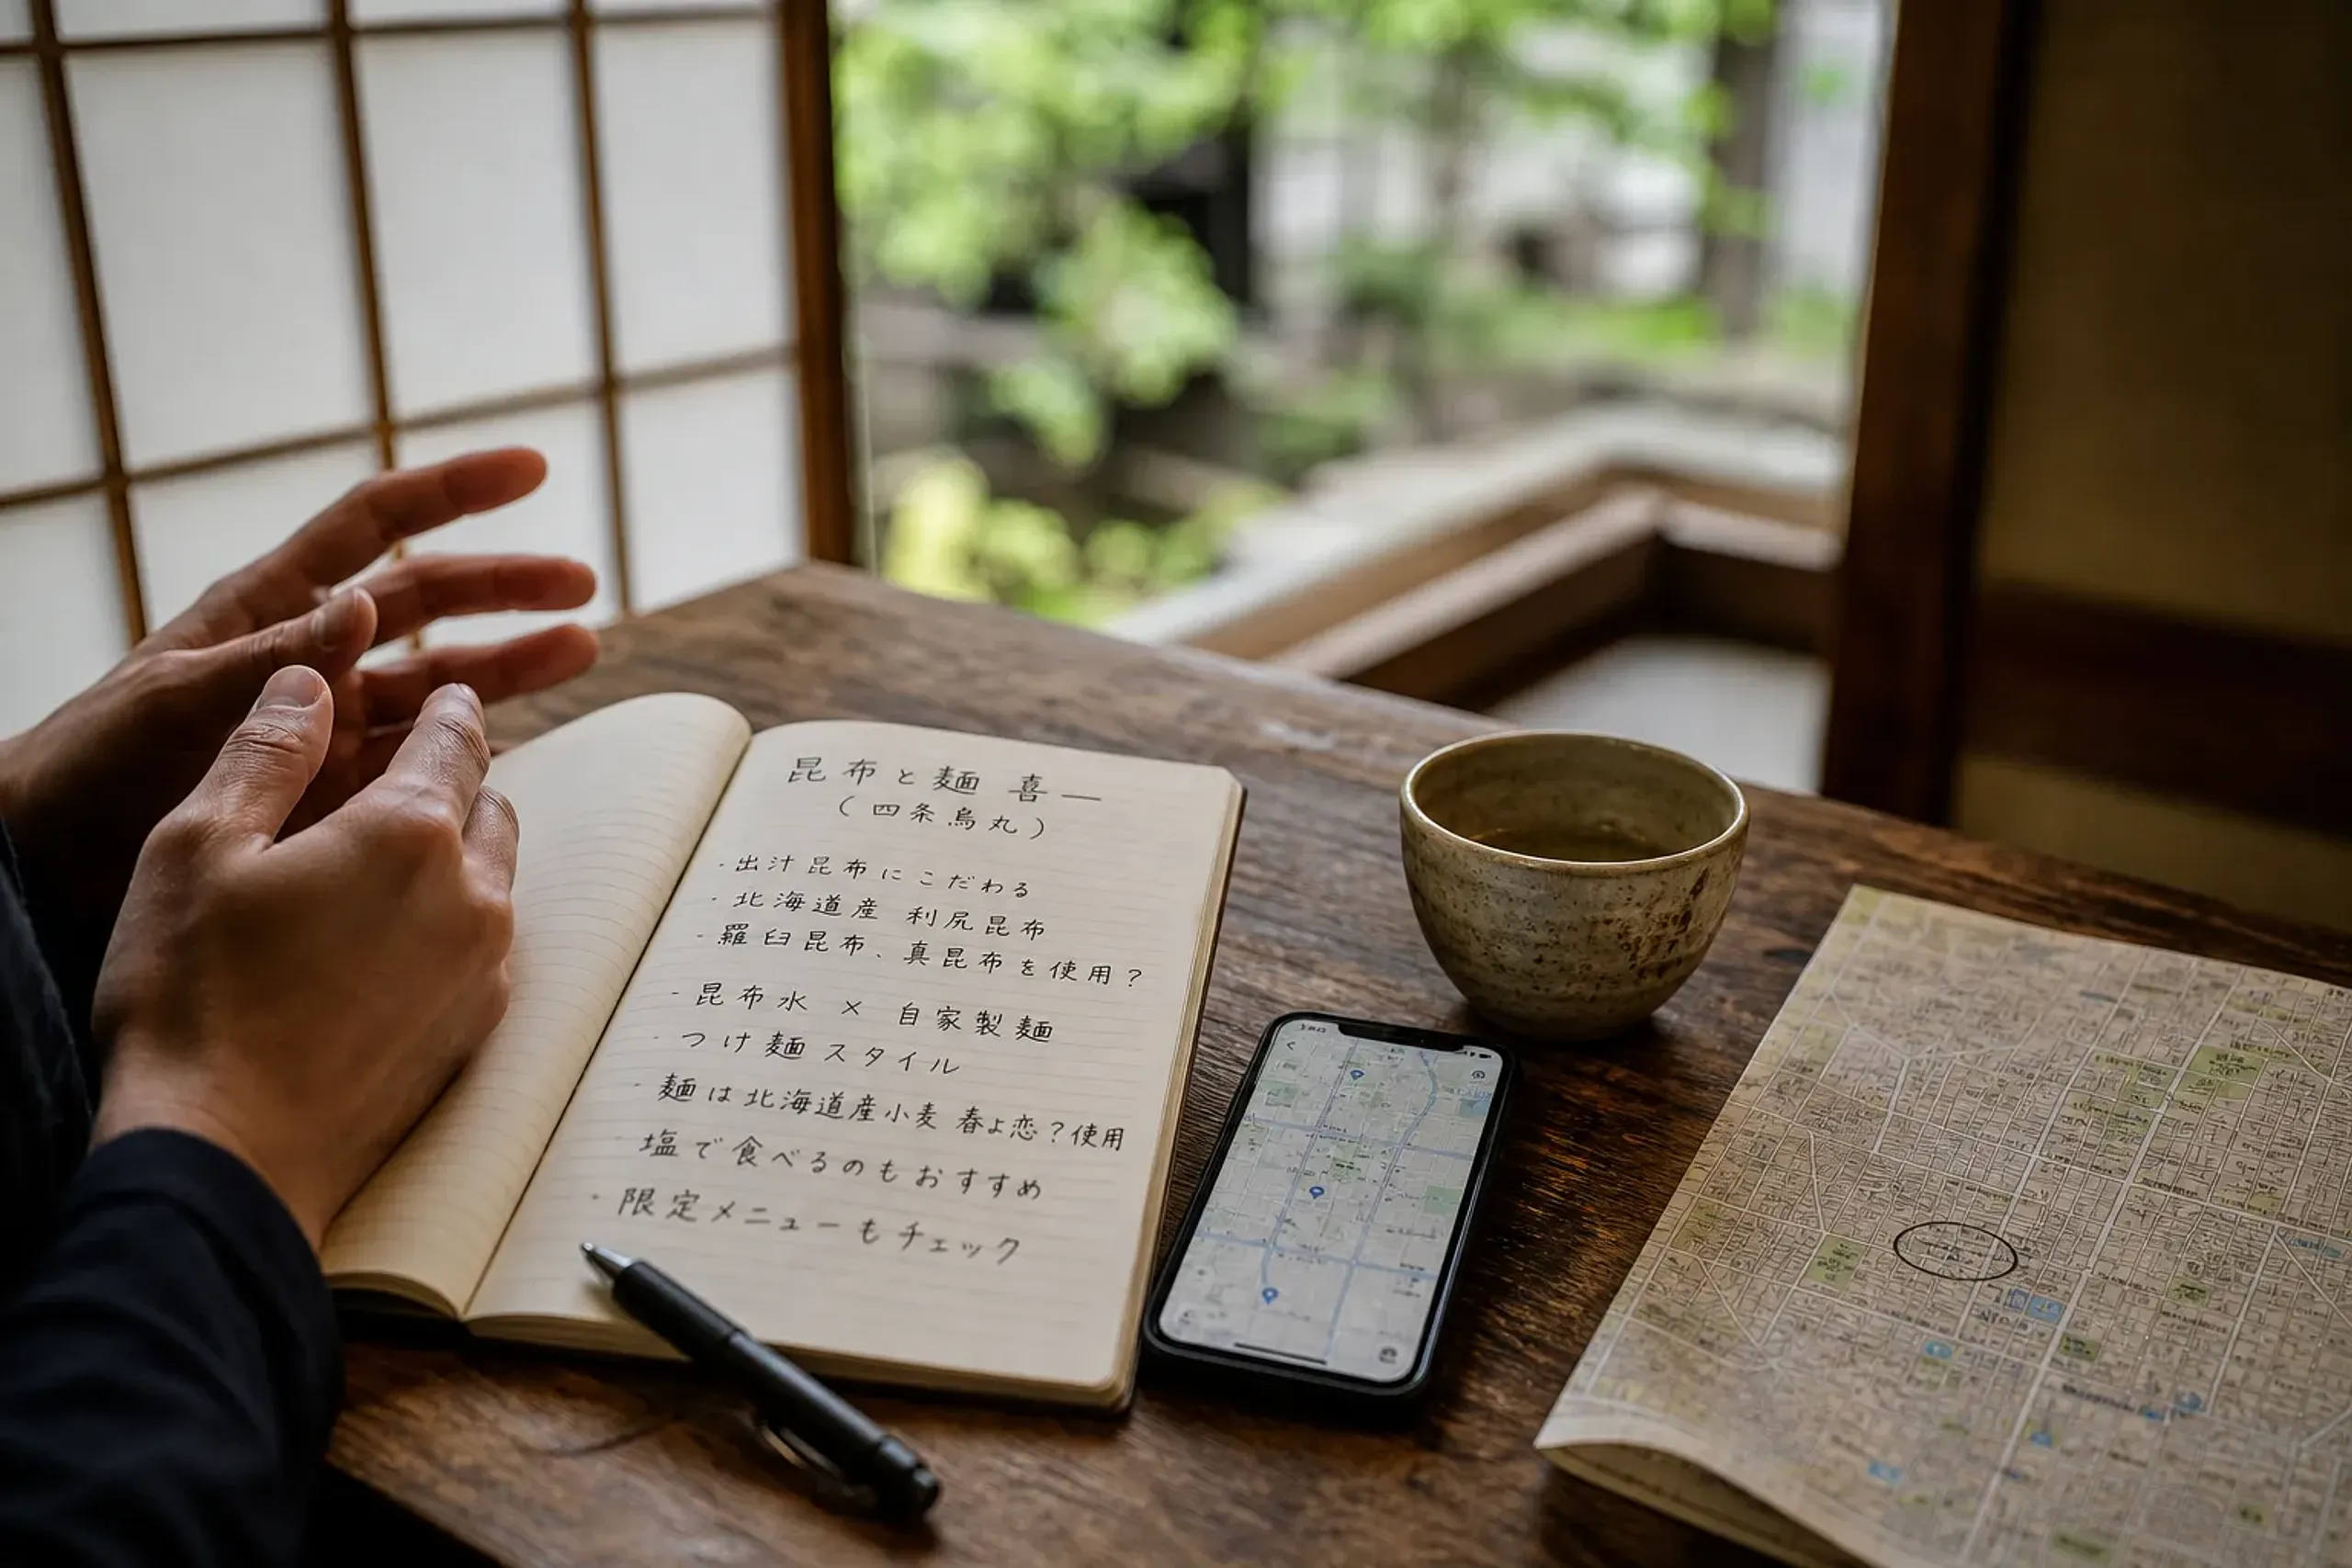 昆布と麺 喜一
(四条烏丸)
・出汁昆布にこだわる
・北海道産 利尻昆布
・羅臼昆布、真昆布を使用?
・昆布水 × 自家製麺
・つけ麺スタイル
・麺は北海道産小麦 春よ恋?使用
塩で食べるのもおすすめ
・限定メニューもチェック